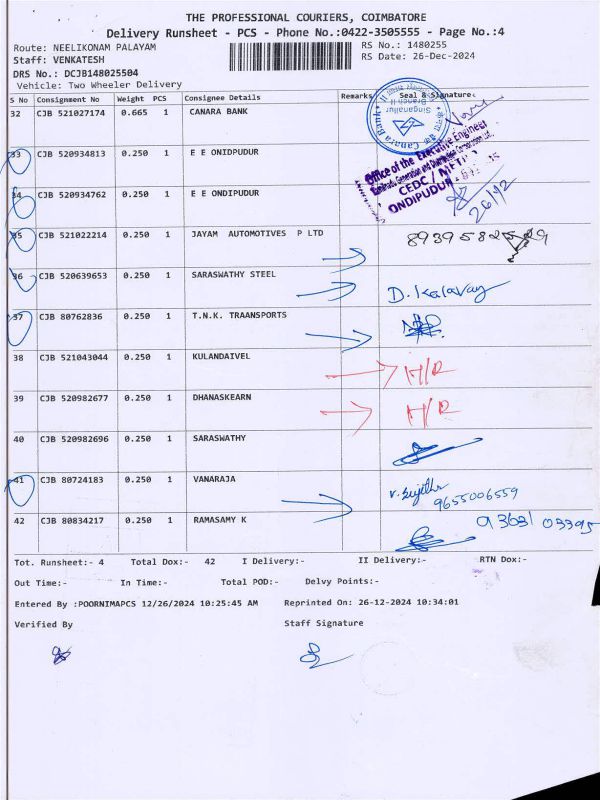 THE PROFESSIONAL COURIERS, COIMBATORE
Delivery Runsheet - PCS - Phone No.:0422-3505555 - Page No.:4
Route: NEELIKONAM PALAYAM RS No.: 1480255
Staff: VENKATESH RS Date: 26-Dec-2024
DRS No.: DCJB148025504
Vehicle: Two Wheeler Delivery
S No Consignment No Weight PCS Consignee Details Remarks Seal & Signature
32 CJB 521027174 0.665 1 CANARA BANK
Singanallur
Branch II
Canara Bank
33 CJB 520934813 0.250 1 E E ONIDPUDUR
Office of the Executive Engineer
CEDC / METRO
ONDIPUDUR
34 CJB 520934762 0.250 1 E E ONDIPUDUR
26/12
35 CJB 521022214 0.250 1 JAYAM AUTOMOTIVES P LTD
36 CJB 520639653 0.250 1 SARASWATHY STEEL D. Kalavay
37 CJB 80762836 0.250 1 T.N.K. TRAANSPORTS
38 CJB 521043044 0.250 1 KULANDAIVEL H/R
39 CJB 520982677 0.250 1 DHANASKEARN H/R
40 CJB 520982696 0.250 1 SARASWATHY
41 CJB 80724183 0.250 1 VANARAJA V. Sujitha
9655006559
42 CJB 80834217 0.250 1 RAMASAMY K 93631 03395
Tot. Runsheet:- 4 Total Dox:- 42 I Delivery:- II Delivery:- RTN Dox:-
Out Time:- In Time:- Total POD:- Delvy Points:-
Entered By :POORNIMAPCS 12/26/2024 10:25:45 AM Reprinted On: 26-12-2024 10:34:01
Verified By Staff Signature